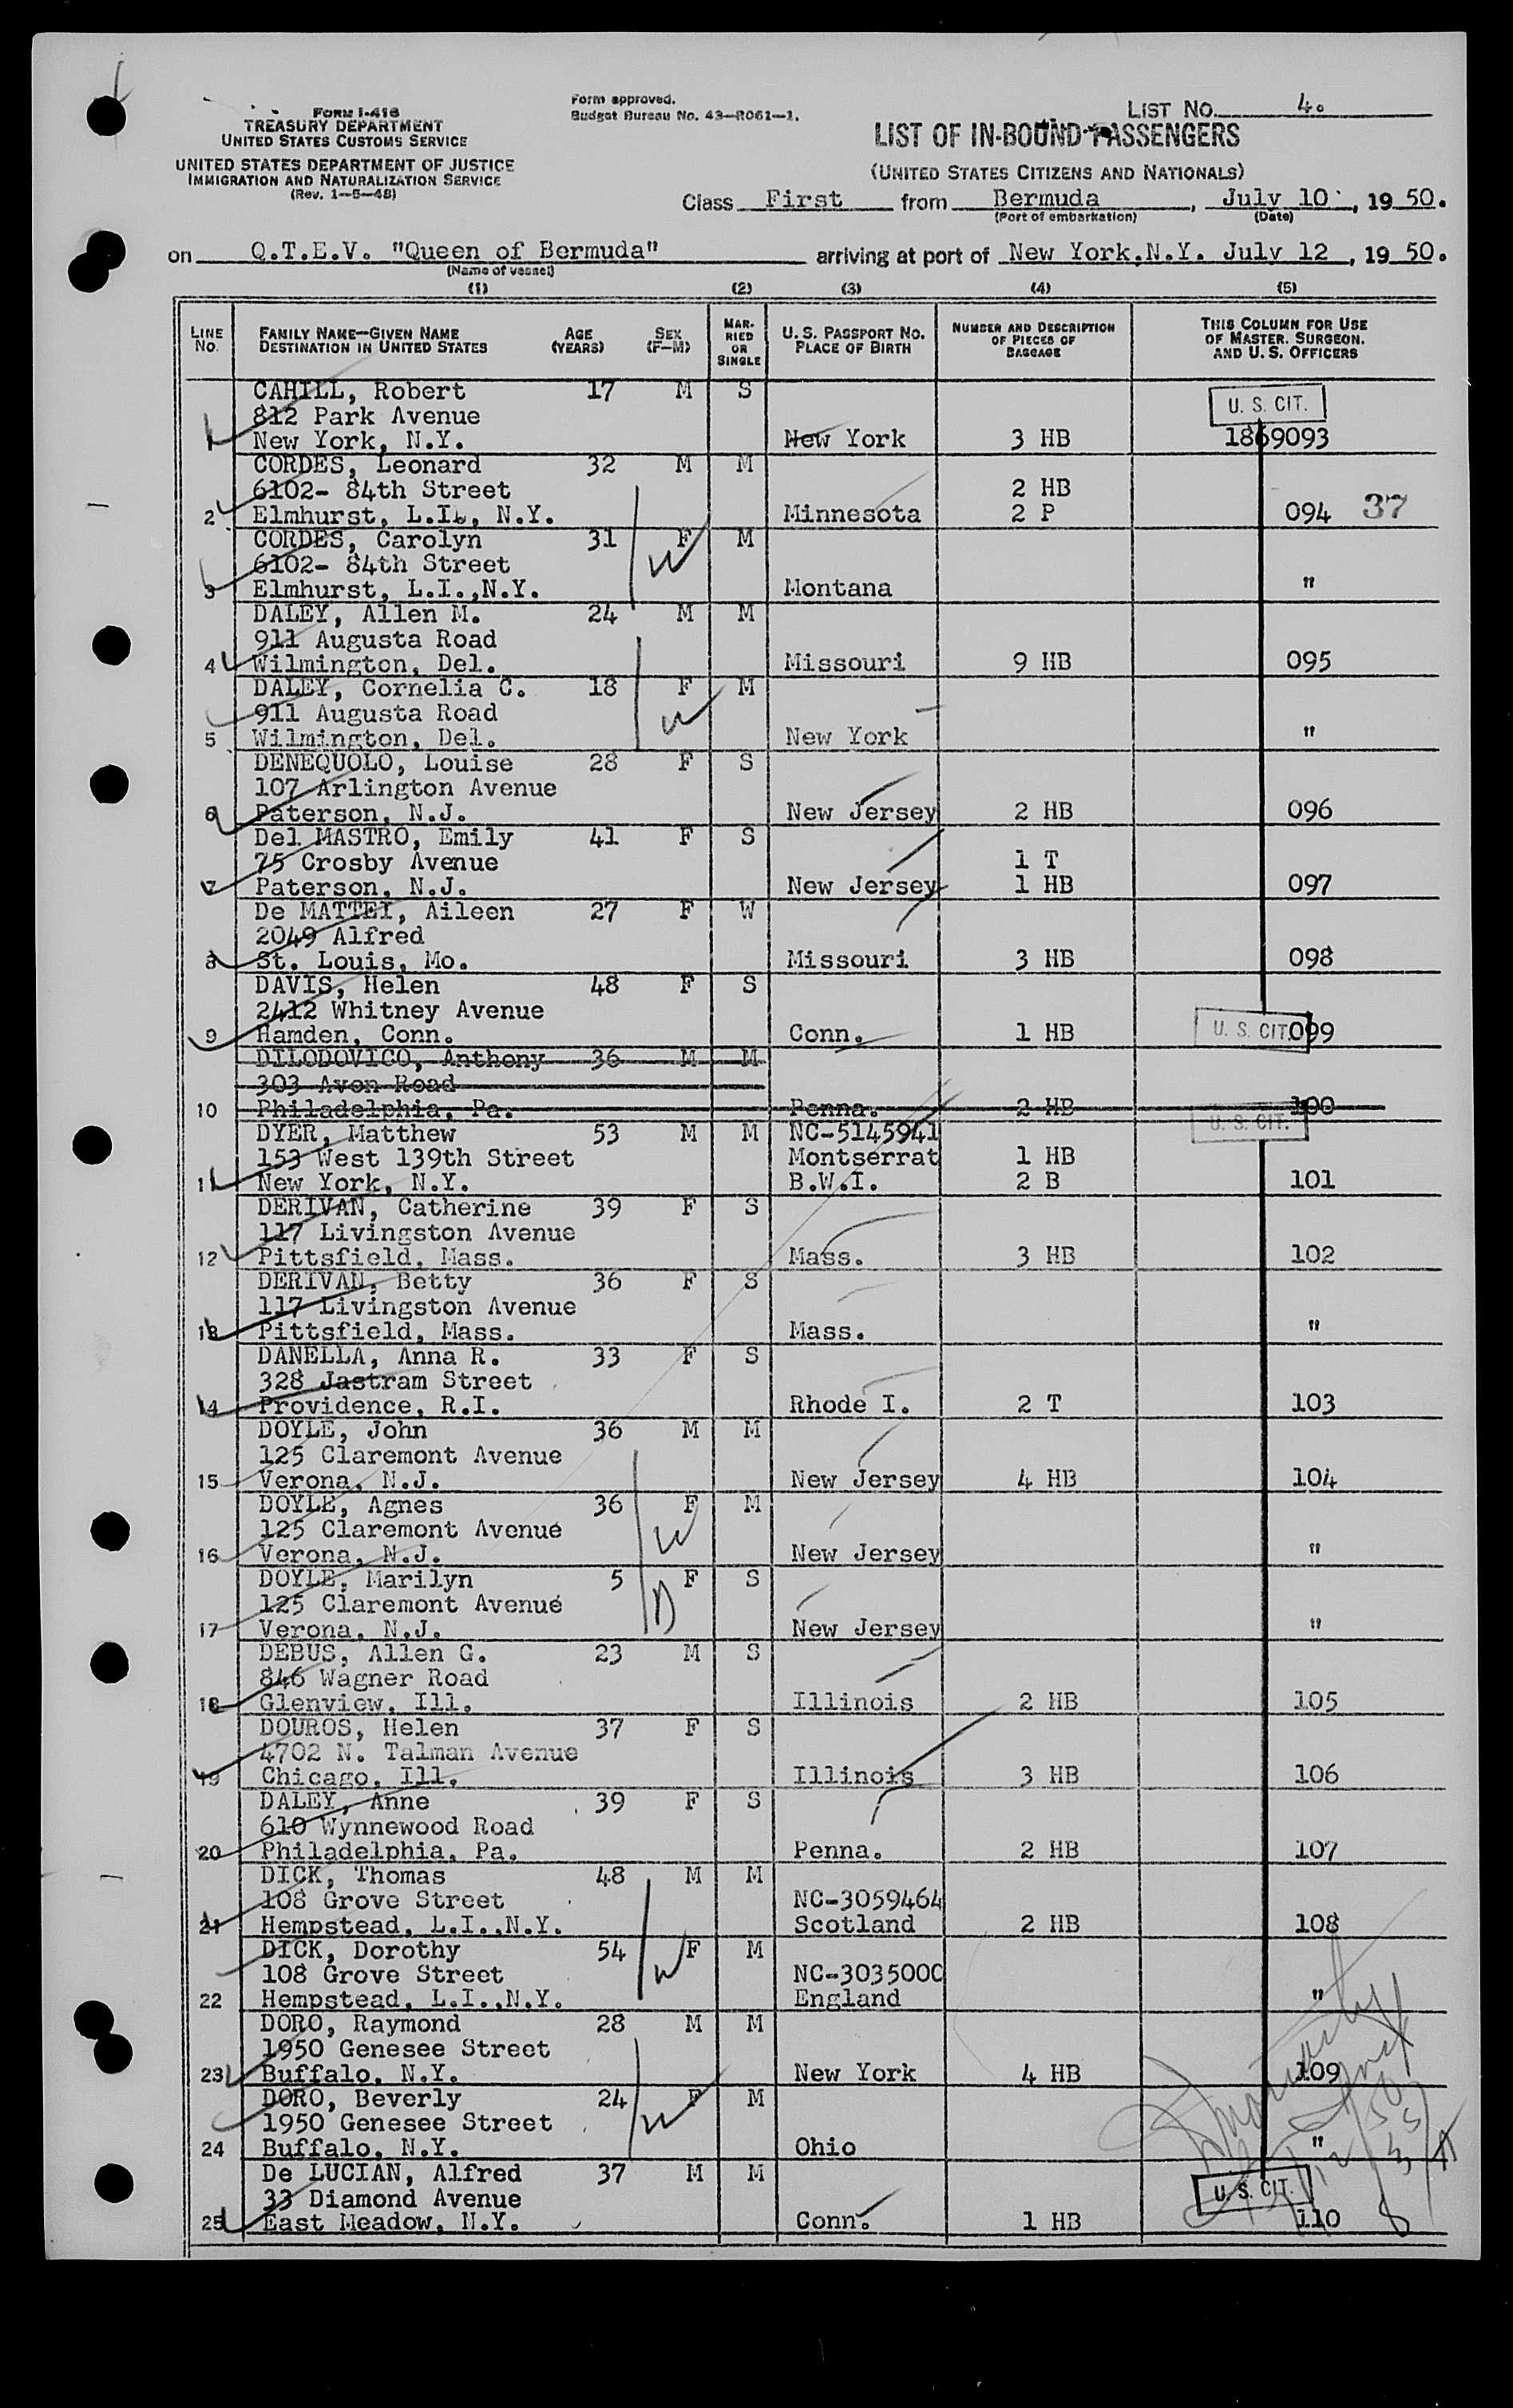 FORM I-418
TREASURY DEPARTMENT
UNITED STATES CUSTOMS SERVICE
UNITED STATES DEPARTMENT OF JUSTICE
IMMIGRATION AND NATURALIZATION SERVICE
(Rev. 1-5-48)
Form approved.
Budget Bureau No. 43-R061-1.
LIST NO. 4.
LIST OF IN-BOUND PASSENGERS
(UNITED STATES CITIZENS AND NATIONALS)
Class First from Bermuda, July 10, 19 50.
(Port of embarkation) (Date)
on Q.T.E.V. "Queen of Bermuda" arriving at port of New York, N.Y. July 12, 19 50.
(Name of vessel)
(1) (2) (3) (4) (5)
LINE NO. FAMILY NAME—GIVEN NAME DESTINATION IN UNITED STATES AGE (YEARS) SEX (F-M) MARRIED OR SINGLE U. S. PASSPORT NO. PLACE OF BIRTH NUMBER AND DESCRIPTION OF PIECES OF BAGGAGE THIS COLUMN FOR USE OF MASTER, SURGEON, AND U. S. OFFICERS
CAHILL, Robert 17 M S
812 Park Avenue U. S. CIT.
1 New York, N.Y. New York 3 HB 1869093
CORDES, Leonard 32 M M
6102- 84th Street 2 HB
2 Elmhurst, L.I., N.Y. Minnesota 2 P 094 37
CORDES, Carolyn 31 F M
6102- 84th Street W
3 Elmhurst, L.I.,N.Y. Montana "
DALEY, Allen M. 24 M M
911 Augusta Road
4 Wilmington, Del. Missouri 9 HB 095
DALEY, Cornelia C. 18 F M
911 Augusta Road W
5 Wilmington, Del. New York "
DENEQUOLO, Louise 28 F S
107 Arlington Avenue
6 Paterson, N.J. New Jersey 2 HB 096
Del MASTRO, Emily 41 F S
75 Crosby Avenue 1 T
7 Paterson, N.J. New Jersey 1 HB 097
De MATTEI, Aileen 27 F W
2049 Alfred
8 St. Louis, Mo. Missouri 3 HB 098
DAVIS, Helen 48 F S
2412 Whitney Avenue
9 Hamden, Conn. Conn. 1 HB U. S. CIT. 099
DILODOVICO, Anthony 36 M M
303 Avon Road
10 Philadelphia, Pa. Penna. 2 HB 100
DYER, Matthew 53 M M NC-5145941 U. S. CIT.
153 West 139th Street Montserrat 1 HB
11 New York, N.Y. B.W.I. 2 B 101
DERIVAN, Catherine 39 F S
117 Livingston Avenue
12 Pittsfield, Mass. Mass. 3 HB 102
DERIVAN, Betty 36 F S
117 Livingston Avenue
13 Pittsfield, Mass. Mass. "
DANELLA, Anna R. 33 F S
328 Jastram Street
14 Providence, R.I. Rhode I. 2 T 103
DOYLE, John 36 M M
125 Claremont Avenue
15 Verona, N.J. New Jersey 4 HB 104
DOYLE, Agnes 36 F M
125 Claremont Avenue W
16 Verona, N.J. New Jersey "
DOYLE, Marilyn 5 F S
125 Claremont Avenue D
17 Verona, N.J. New Jersey "
DEBUS, Allen G. 23 M S
846 Wagner Road
18 Glenview, Ill. Illinois 2 HB 105
DOUROS, Helen 37 F S
4702 N. Talman Avenue
19 Chicago, Ill. Illinois 3 HB 106
DALEY, Anne 39 F S
610 Wynnewood Road
20 Philadelphia, Pa. Penna. 2 HB 107
DICK, Thomas 48 M M
108 Grove Street NC-3059464
21 Hempstead, L.I.,N.Y. Scotland 2 HB 108
DICK, Dorothy 54 W F M
108 Grove Street NC-3035000
22 Hempstead, L.I.,N.Y. England "
DORO, Raymond 28 M M
1950 Genesee Street
23 Buffalo, N.Y. New York 4 HB 109
DORO, Beverly 24 F M
1950 Genesee Street W
24 Buffalo, N.Y. Ohio "
De LUCIAN, Alfred 37 M M
33 Diamond Avenue U. S. CIT.
25 East Meadow, N.Y. Conn. 1 HB 110